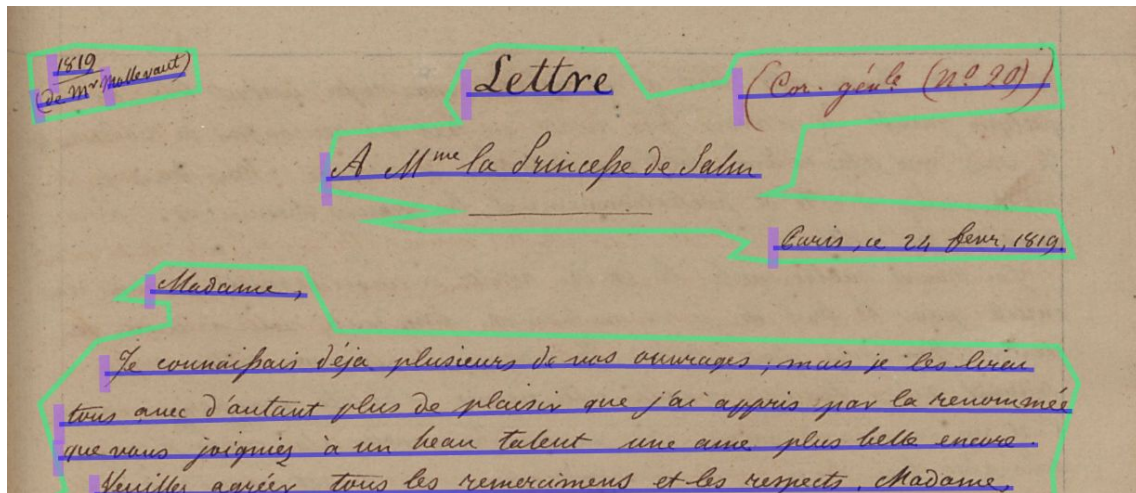 1819
(de Mr Mollevaut)
Lettre
(Cor. génle (no 20)
A Mme la Princesse de Salm
Paris, ce 24 fevr, 1819.
Madame,
Je connaissais déja plusieurs de vos ouvrages, mais je les lirai
tous avec d'autant plus de plaisir que j'ai appris par la renommée
que vous joigniez à un beau talent une ame plus belle encore.
Veuillez agréer tous les remercimens et les respects, Madame,